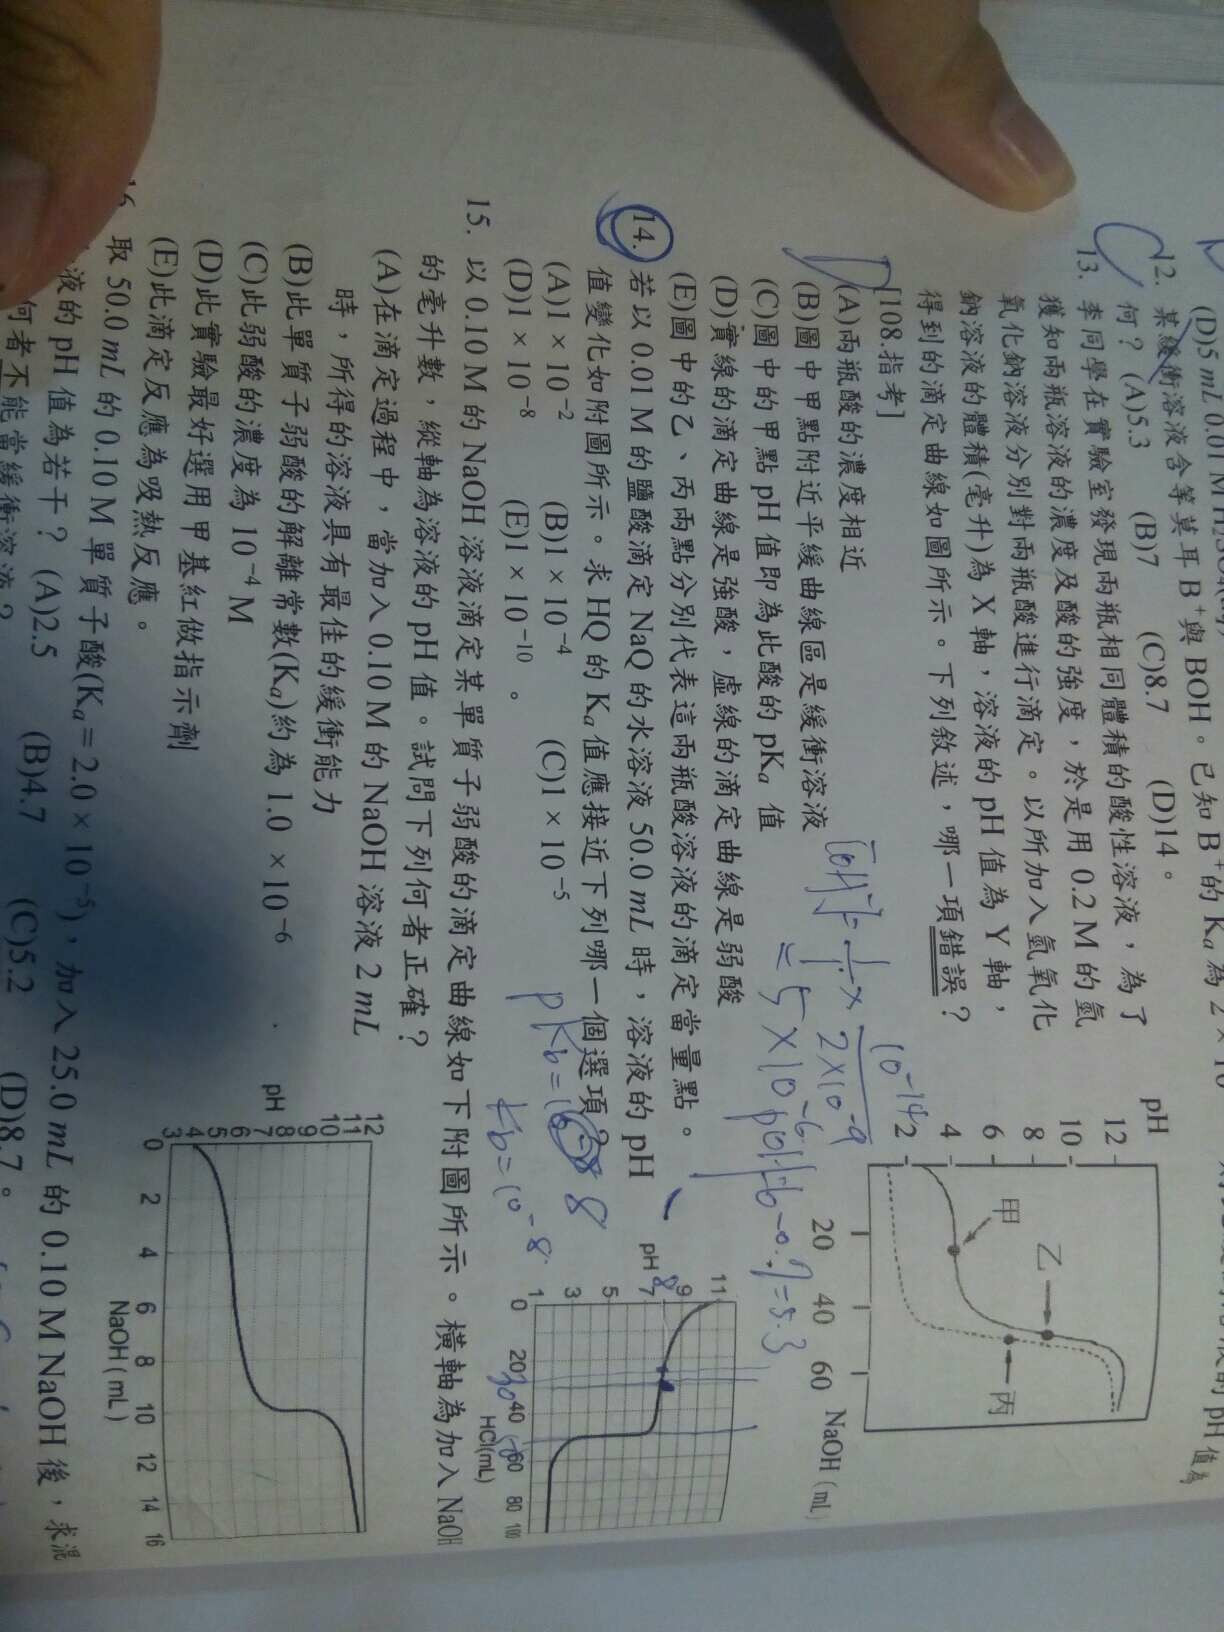 (D)5 mL 0.01 M H₂SO₄
12. 某緩衝溶液含等莫耳 B⁺與 BOH。已知 B⁺的 Kₐ 為 2 × 10
何？ (A)5.3 (B)7 (C)8.7 (D)14。
13. 李同學在實驗室發現兩瓶相同體積的酸性溶液，為了
獲知兩瓶溶液的濃度及酸的強度，於是用 0.2 M 的氫
氧化鈉溶液分別對兩瓶酸進行滴定。以所加入氫氧化
鈉溶液的體積(毫升)為 X 軸，溶液的 pH 值為 Y 軸，
得到的滴定曲線如圖所示。下列敘述，哪一項錯誤？
[108.指考]
(A)兩瓶酸的濃度相近
(B)圖中甲點附近平緩曲線區是緩衝溶液
(C)圖中的甲點 pH 值即為此酸的 pKₐ 值
(D)實線的滴定曲線是強酸，虛線的滴定曲線是弱酸
(E)圖中的乙、丙兩點分別代表這兩瓶酸溶液的滴定當量點。
pH
12
10
8
6
4
2
甲
乙
丙
20 40 60 NaOH (mL)
[OH⁻]=
10⁻¹⁴
2×10⁻⁹
= 5 ×10⁻⁶
=5.3
14. 若以 0.01 M 的鹽酸滴定 NaQ 的水溶液 50.0 mL 時，溶液的 pH
值變化如附圖所示。求 HQ 的 Kₐ 值應接近下列哪一個選項？
(A)1 × 10⁻² (B)1 × 10⁻⁴ (C)1 × 10⁻⁵
(D)1 × 10⁻⁸ (E)1 × 10⁻¹⁰。
8
Kb=10⁻⁸
pH
11
9
8
7
5
3
1
0 20 40 60 80 100
30
HCl(mL)
15. 以 0.10 M 的 NaOH 溶液滴定某單質子弱酸的滴定曲線如下附圖所示。橫軸為加入 NaOH
的毫升數，縱軸為溶液的 pH 值。試問下列何者正確？
(A)在滴定過程中，當加入 0.10 M 的 NaOH 溶液 2 mL
時，所得的溶液具有最佳的緩衝能力
(B)此單質子弱酸的解離常數(Kₐ)約為 1.0 × 10⁻⁶
(C)此弱酸的濃度為 10⁻⁴ M
(D)此實驗最好選用甲基紅做指示劑
(E)此滴定反應為吸熱反應。
pH
12
11
10
9
8
7
6
5
4
3
0 2 4 6 8 10 12 14 16
NaOH (mL)
取 50.0 mL 的 0.10 M 單質子酸(Kₐ = 2.0 × 10⁻⁵)，加入 25.0 mL 的 0.10 M NaOH 後，求混
液的 pH 值為若干？ (A)2.5 (B)4.7 (C)5.2 (D)8.7。
何者不能當緩衝溶液？